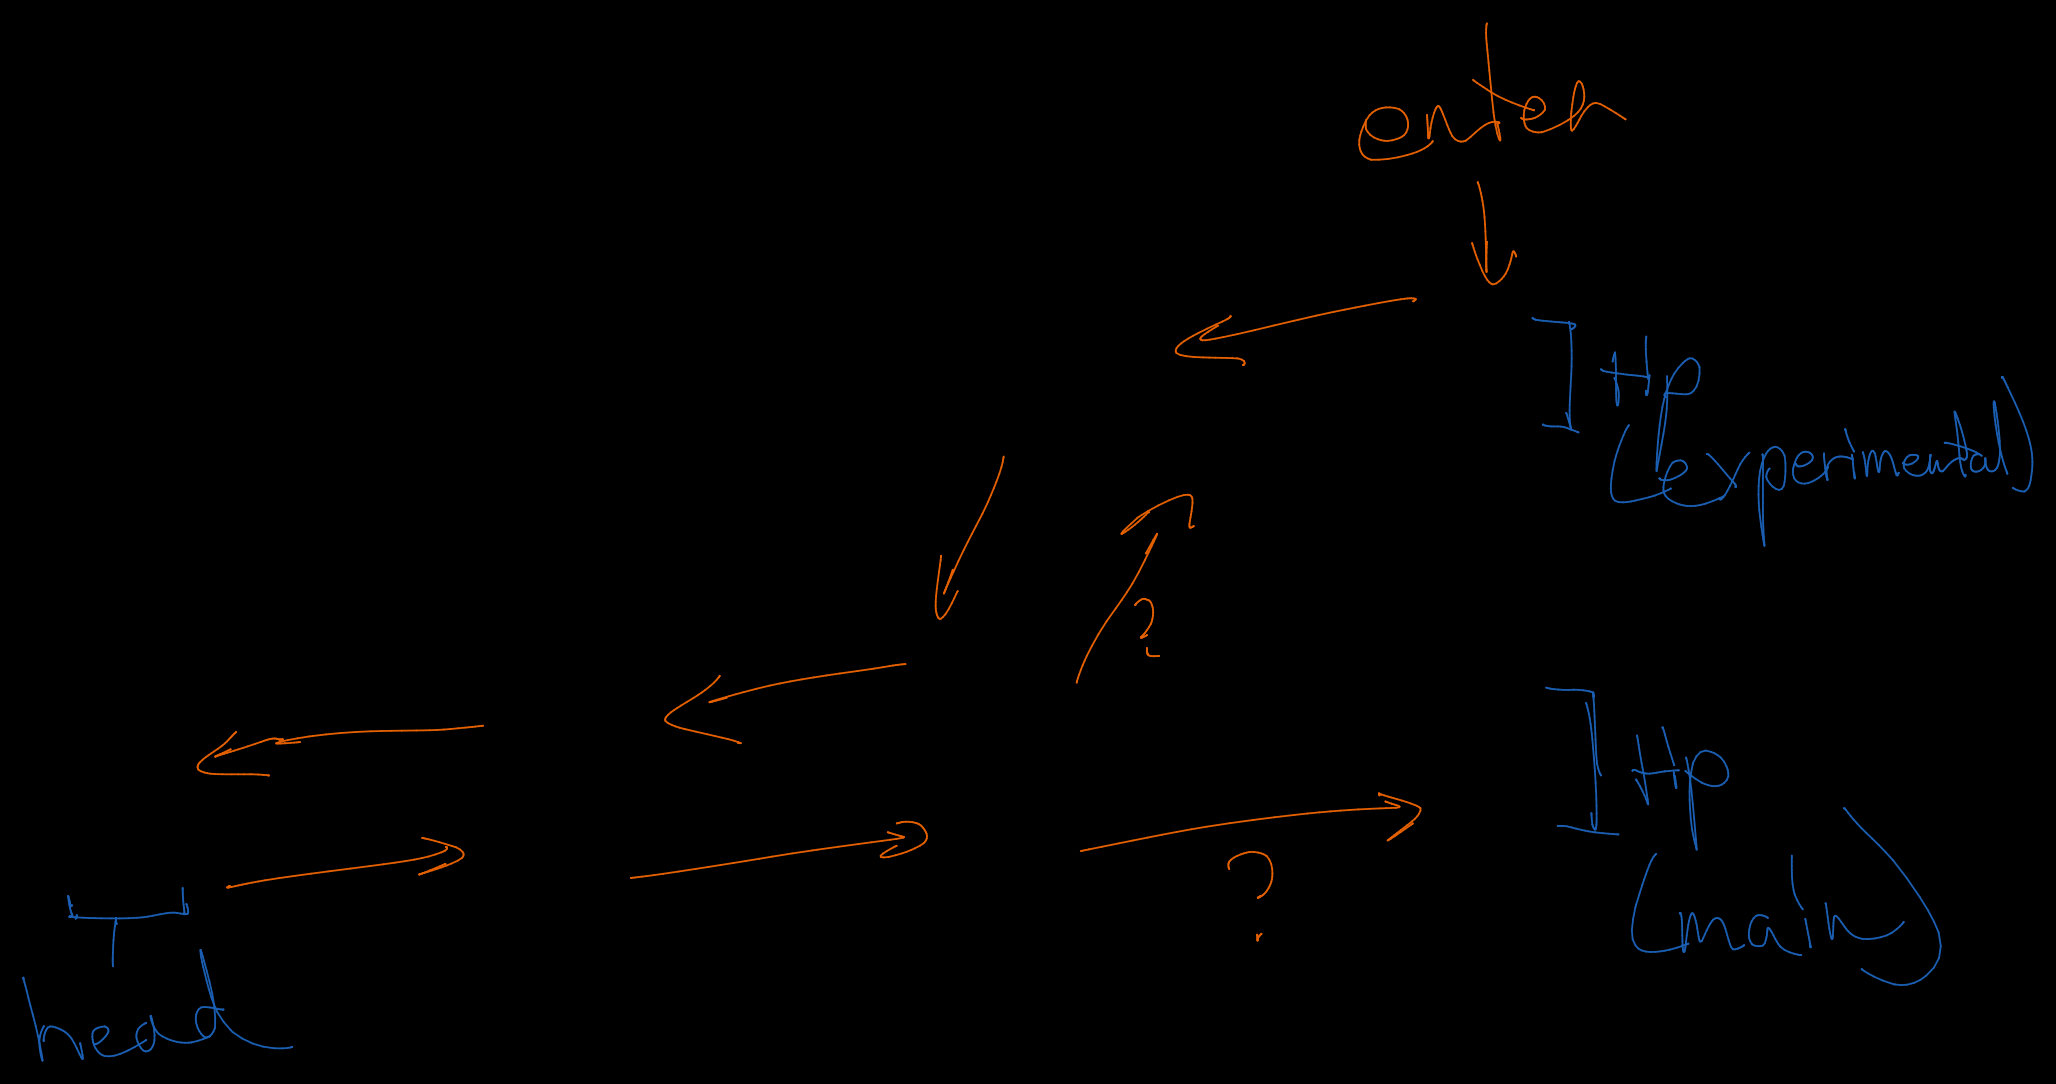 enter
Hp
(experimental)
?
Hp
?
(main)
head